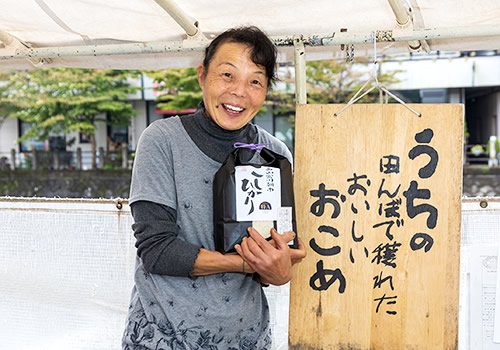 うちの
田んぼで穫れた
おいしい
おこめ
こしひかり